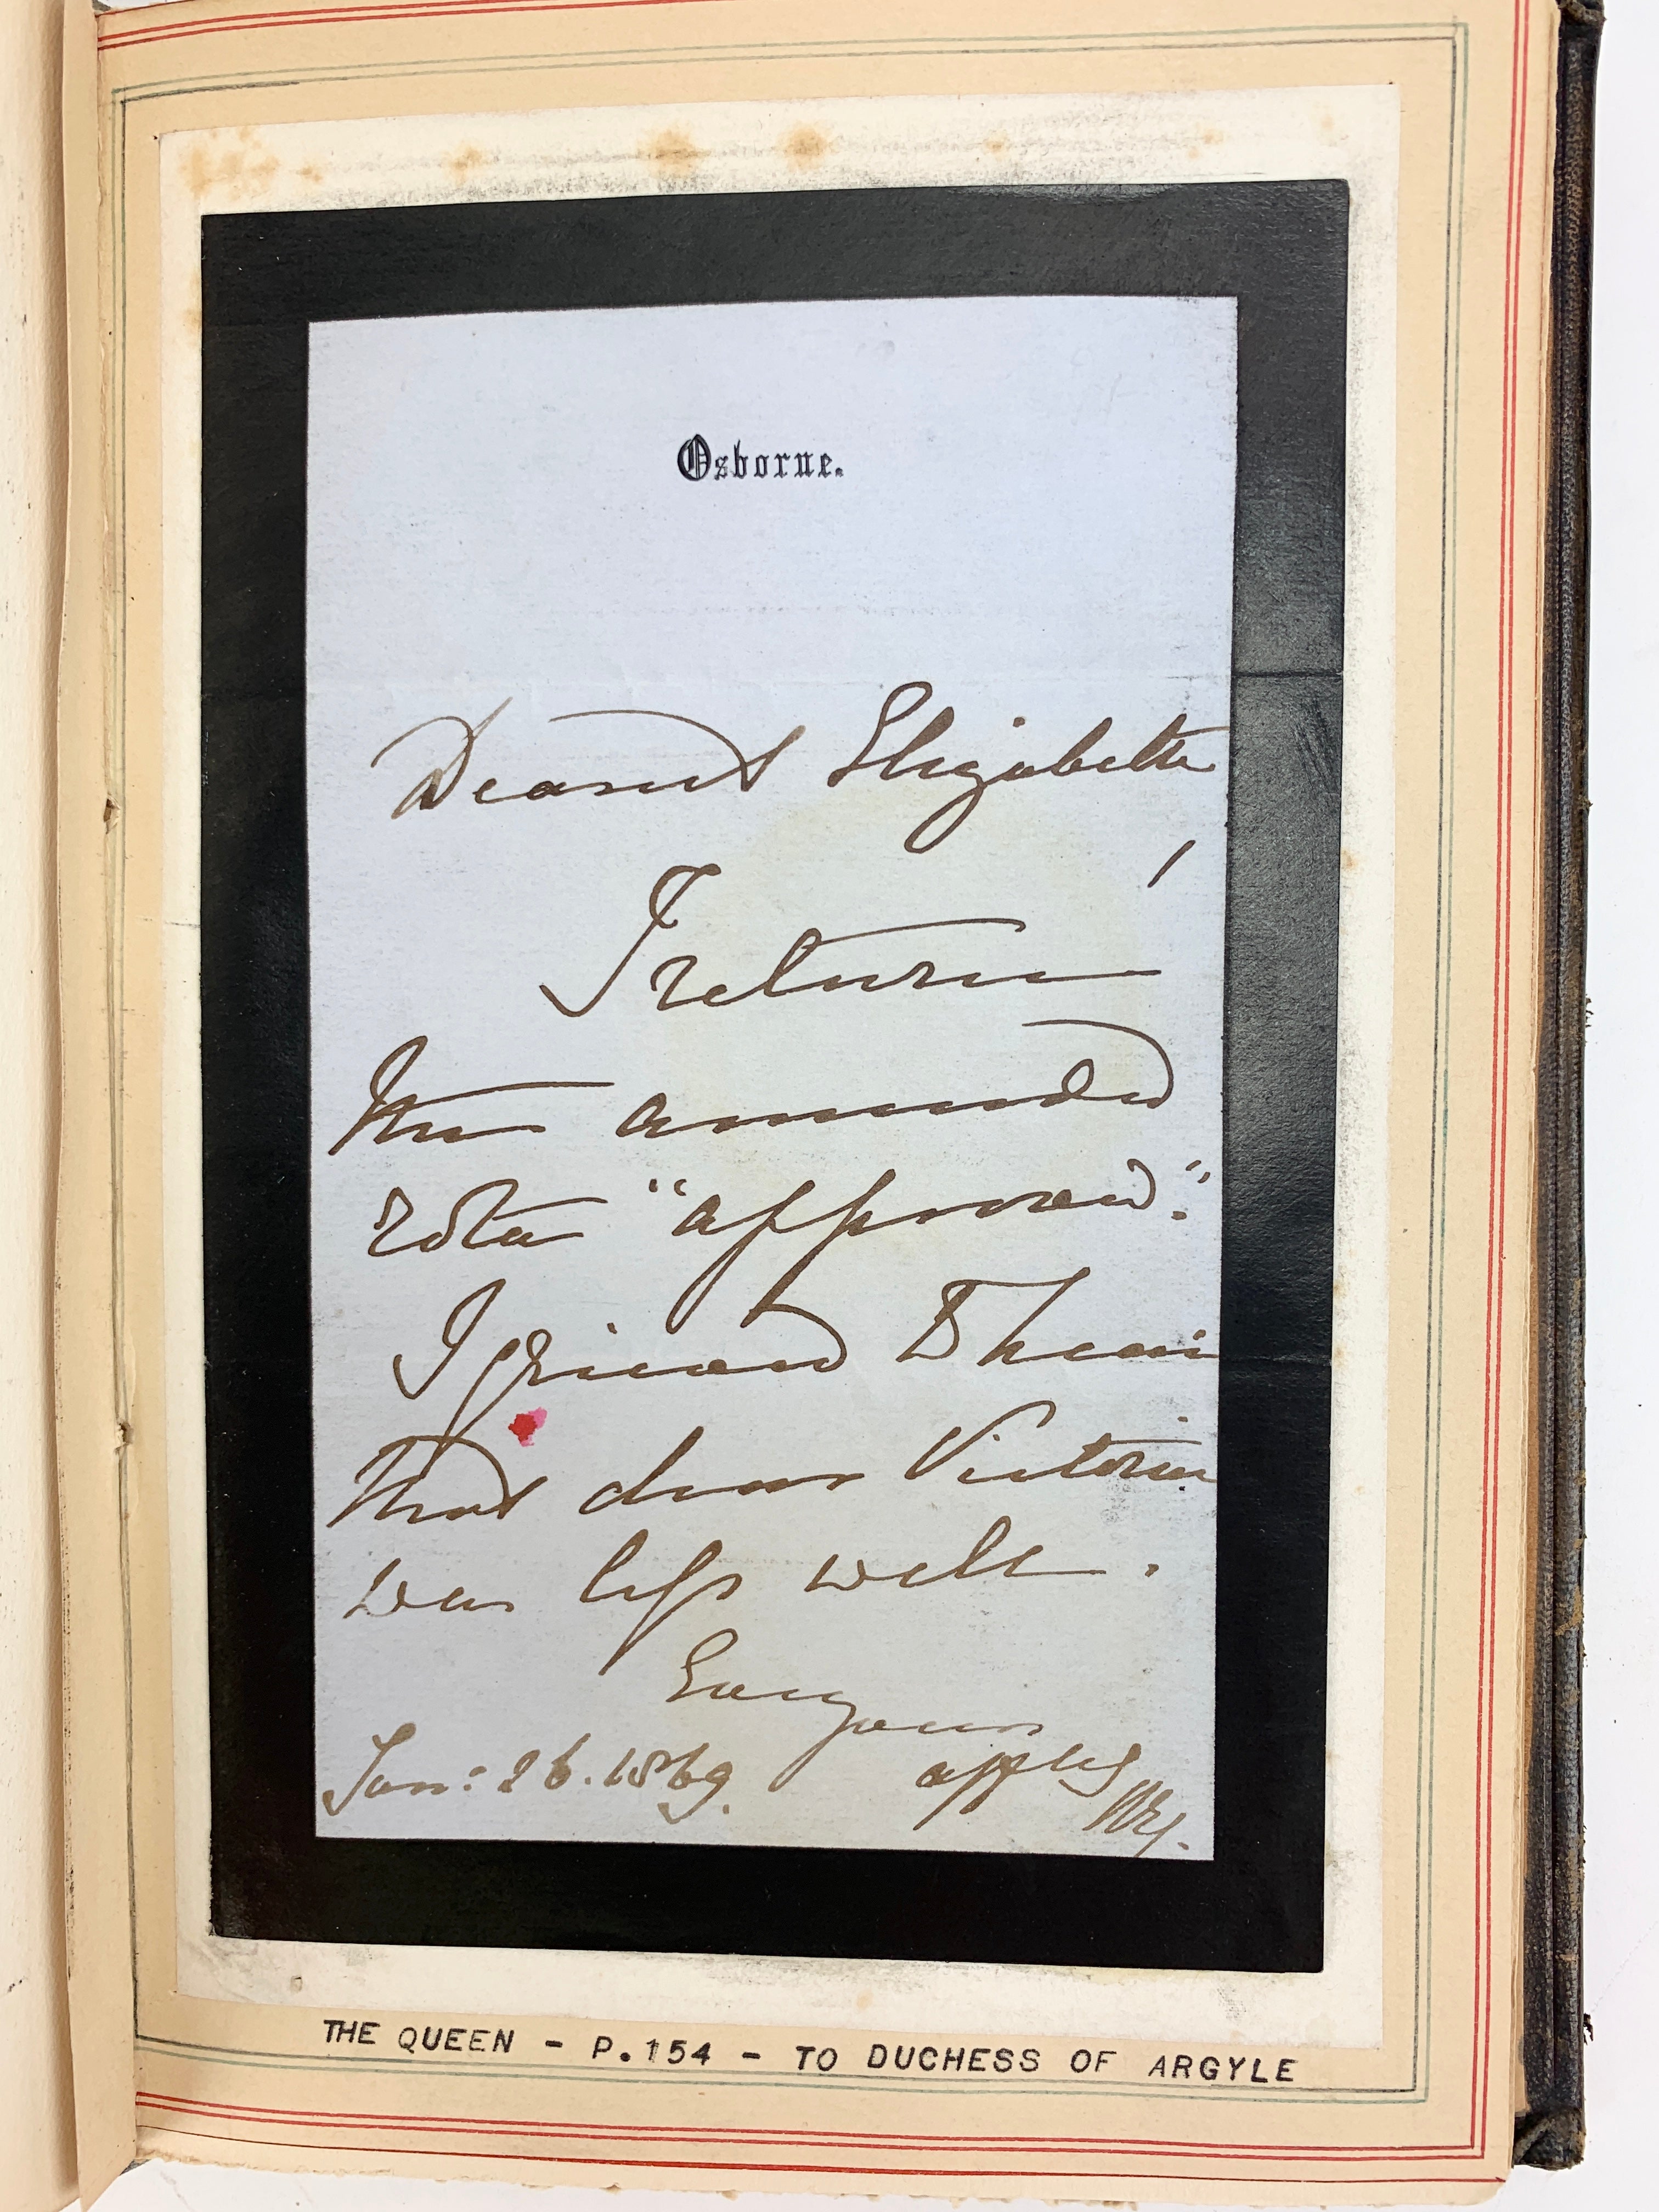 Osborne.
Dearest Elizabeth
,
I return
the amended
rota "approved".
I grieved to hear
that dear Victoria
was less well.
Ever yours
Jan: 26. 1869. affly
VRg.
THE QUEEN - P.154 - TO DUCHESS OF ARGYLE